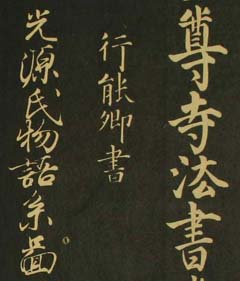 尊寺法書
行能卿書
光源氏物語系圖